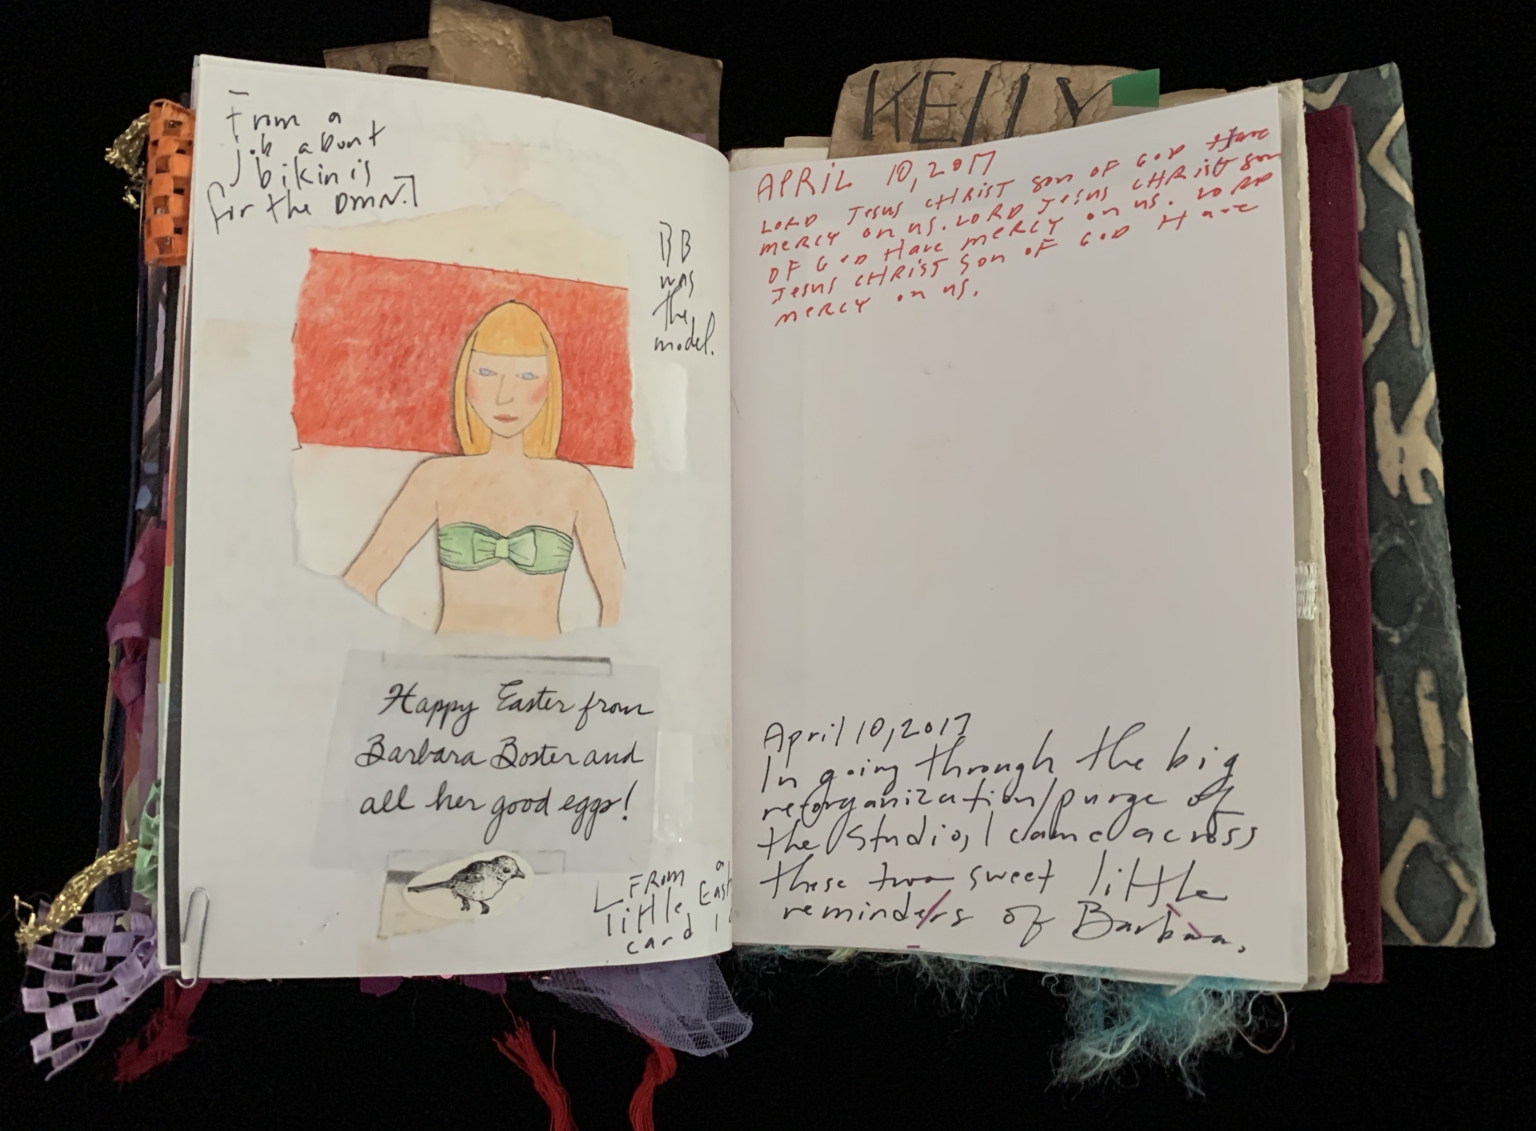 From a
Job about
bikinis
for the DMN.
BB
was
the
model.
Happy Easter from
Barbara Boster and
all her good eggs!
FROM a
little East
card I
KELLY
APRIL 10, 2017
LORD JESUS CHRIST SON OF GOD HAVE
MERCY ON US. LORD JESUS CHRIST SON
OF GOD HAVE MERCY ON US. LORD
JESUS CHRIST SON OF GOD HAVE
MERCY ON US.
April 10, 2017
In going through the big
reorganization/purge of
the Studio, I came across
these two sweet little
reminders of Barbara.